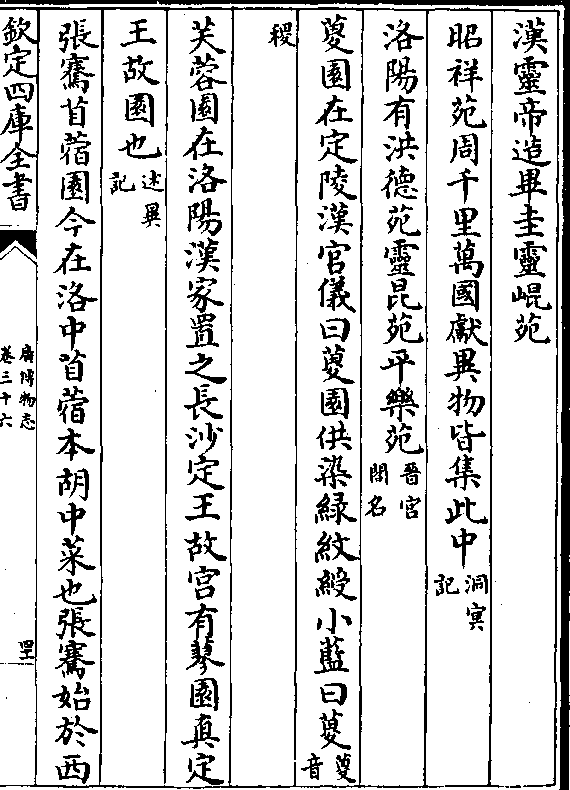 漢靈帝造畢圭靈崐苑
昭祥苑周千里萬國獻異物皆集此中洞冥記
洛陽有洪德苑靈昆苑平樂苑晉宫閣名
蔓園在定陵漢官儀曰蔓園供染緑紋綬小藍曰蔓蔓音
稷
芙蓉園在洛陽漢家置之長沙定王故宫有蓼園真定
王故園也述異記
張騫苜蓿園今在洛中苜蓿本胡中菜也張騫始於西
欽定四庫全書
廣博物志
卷三十六
四